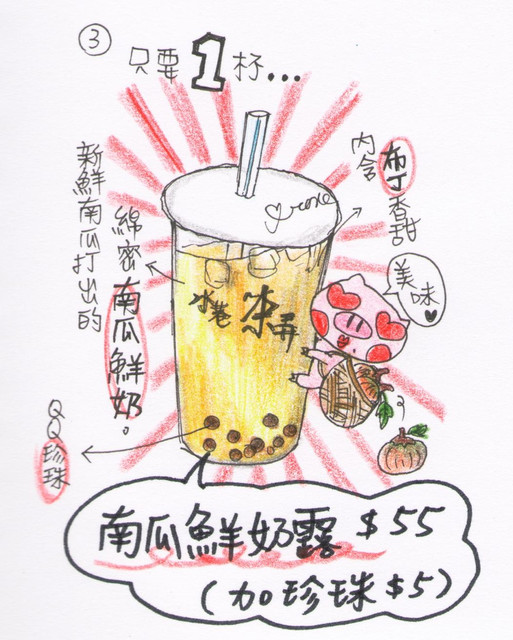 ③
只要1杯...
新鮮南瓜打出的
綿密南瓜鮮奶。
內含
布丁香甜
美味♥
冰巷
茶弄
QQ珍珠
南瓜鮮奶露 $55
(加珍珠$5)